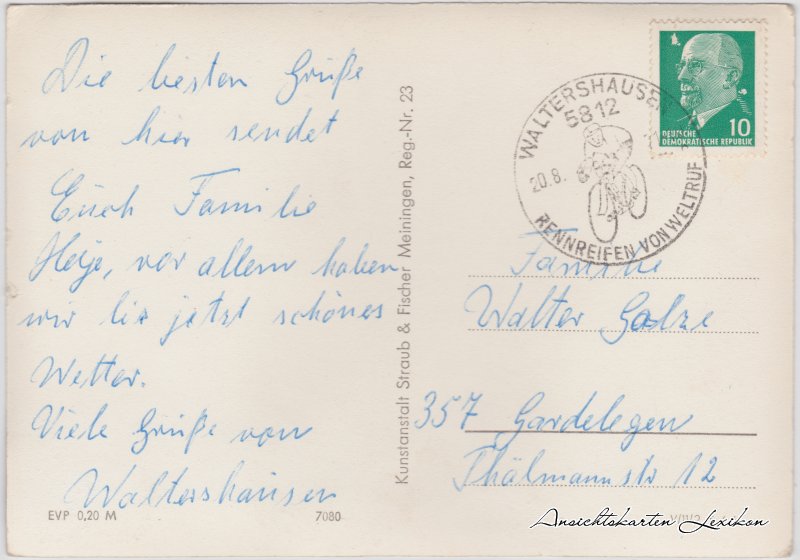 Die besten Grüße
von hier sendet
Euch Familie
Heje, vor allem haben
wir bis jetzt schönes
Wetter.
Viele Grüße von
Waltershausen
EVP 0,20 M
7080
Kunstanstalt Straub & Fischer Meiningen, Reg.-Nr. 23
WALTERSHAUSEN
5812
20.8.
RENNREIFEN VON WELTRUF
DEUTSCHE
DEMOKRATISCHE REPUBLIK
10
Familie
Walter Golze
357 Gardelegen
Thälmannstr 12
Ansichtskarten Lexikon